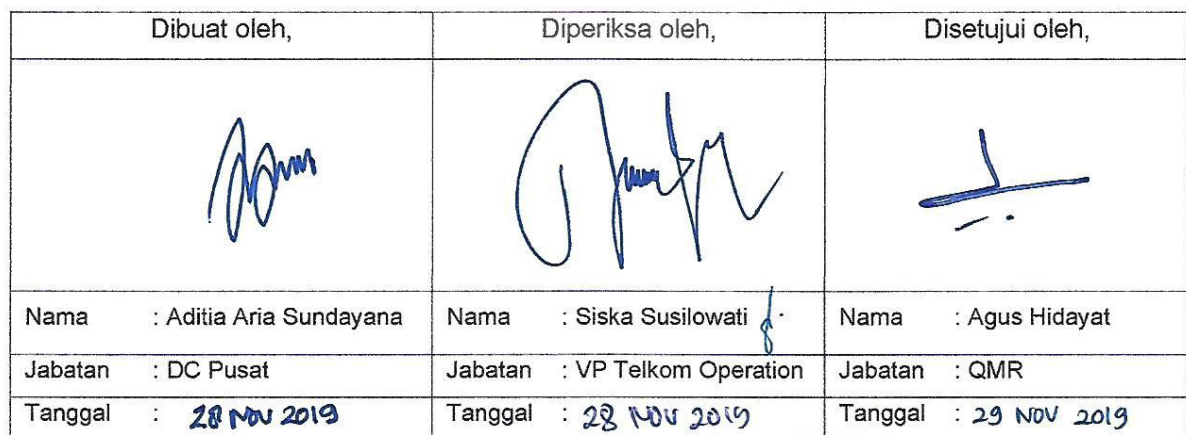 Dibuat oleh, Diperiksa oleh, Disetujui oleh,
Nama : Aditia Aria Sundayana Nama : Siska Susilowati Nama : Agus Hidayat
Jabatan : DC Pusat Jabatan : VP Telkom Operation Jabatan : QMR
Tanggal : 28 NOV 2019 Tanggal : 28 NOV 2019 Tanggal : 29 NOV 2019